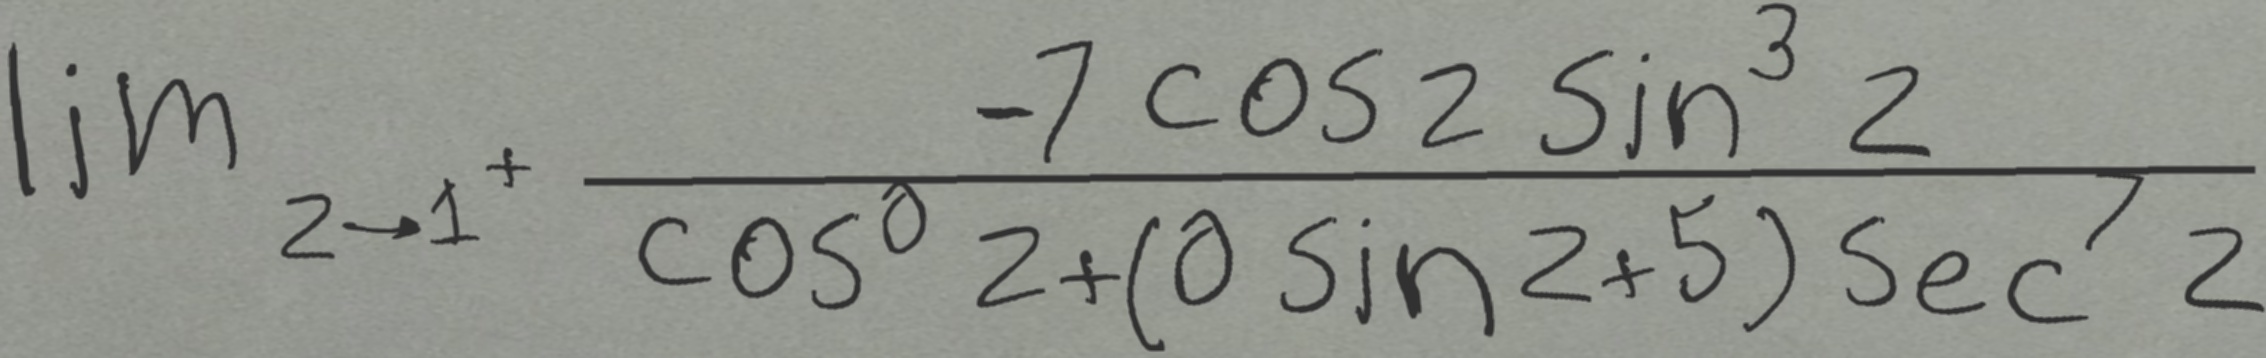 \lim_{z \rightarrow 1^+} \frac{-7 \cos z \sin^3 z}{\cos^0 z + (0 \sin z + 5) \sec^7 z}